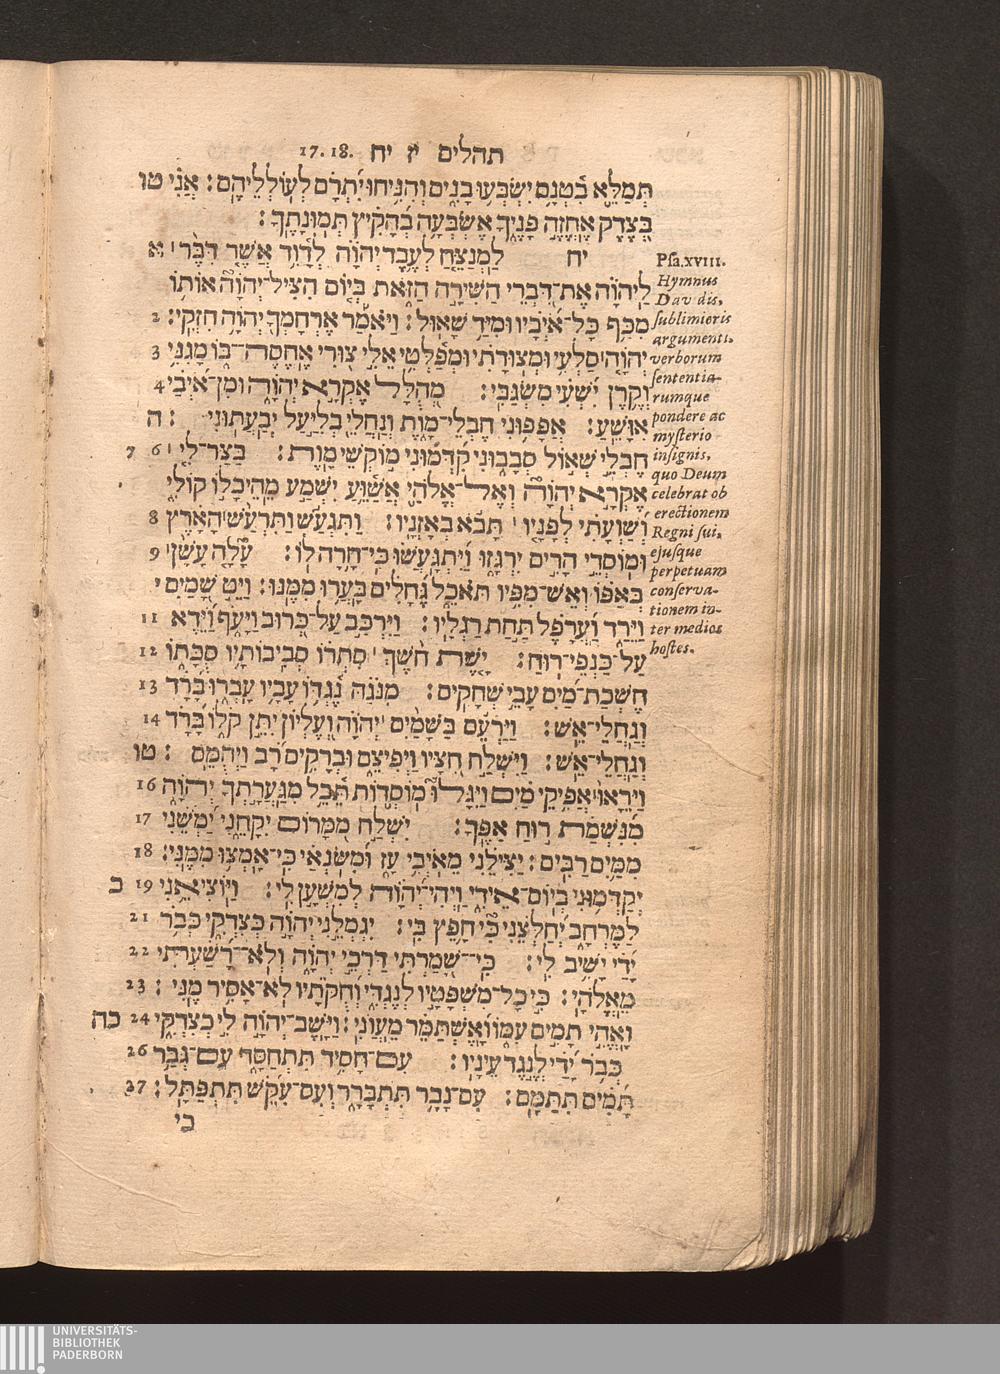 תהלים יז יח 17.18.
תְּמַלֵּ֪א בִ֫טְנָ֥ם יִשְׂבְּע֥וּ בָנִ֑ים וְהִנִּ֥יחוּ יִ֝תְרָ֗ם לְעֽוֹלְלֵיהֶֽם׃ אֲנִ֗י טו
בְּ֭צֶדֶק אֶחֱזֶ֣ה פָנֶ֑יךָ אֶשְׂבְּעָ֥ה בְ֝הָקִ֗יץ תְּמוּנָתֶֽךָ׃
יח לַמְנַצֵּ֤חַ לְעֶ֥בֶד יְהוָ֗ה לְדָ֫וִ֥ד אֲשֶׁ֤ר דִּבֶּ֨ר׀ א
לַיהוָ֗ה אֶת־דִּ֭בְרֵי הַשִּׁירָ֣ה הַזֹּ֑את בְּי֤וֹם הִֽצִּיל־יְהוָ֘ה אוֹת֥וֹ
מִכַּ֥ף כָּל־אֹ֝יְבָ֗יו וּמִיַּ֥ד שָׁאֽוּל׃ וַיֹּאמַ֡ר אֶרְחָמְךָ֖ יְהוָ֣ה חִזְקִֽי׃ 2
יְהוָ֤ה סַֽלְעִ֥י וּמְצוּדָתִ֗י וּמְפַ֫לְטִ֥י אֵלִ֣י צ֭וּרִי אֶֽחֱסֶה־בּ֑וֹ מָֽגִנִּ֥י 3
וְקֶֽרֶן יִ֝שְׁעִ֗י מִשְׂגַּבִּֽי׃ מְ֭הֻלָּל אֶקְרָ֣א יְהוָ֑ה וּמִן־אֹ֝יְבַ֗י 4
אִוָּשֵֽׁעַ׃ אֲפָפ֥וּנִי חֶבְלֵי־מָ֑וֶת וְֽנַחֲלֵ֖י בְלִיַּ֣עַל יְבַֽעֲתֽוּנִי׃ ה
חֶבְלֵ֣י שְׁא֣וֹל סְבָב֑וּנִי קִ֝דְּמ֗וּנִי מ֣וֹקְשֵׁי מָֽוֶת׃ בַּצַּר־לִ֤י׀ 6 7
אֶֽקְרָ֣א יְהוָה֮ וְאֶל־אֱלֹהַ֪י אֲשַׁ֫וֵּ֥עַ יִשְׁמַ֣ע מֵהֵיכָל֣וֹ קוֹלִ֑י
וְ֝שַׁוְעָתִ֗י לְפָנָ֤יו׀ תָּב֬וֹא בְאָזְנָֽיו׃ וַתִּגְעַ֬שׁ וַתִּרְעַ֨שׁ׀ הָאָ֗רֶץ 8
וּמוֹסְדֵ֣י הָרִ֣ים יִרְגָּ֑זוּ וַ֝יִּתְגָּעֲשׁ֗וּ כִּי־חָ֥רָה לֽוֹ׃ עָ֘לָ֤ה עָשָׁ֨ן׀ 9
בְּאַפּ֗וֹ וְאֵשׁ־מִפִּ֥יו תֹּאכֵ֑ל גֶּ֝חָלִ֗ים בָּעֲר֥וּ מִמֶּֽנּוּ׃ וַיֵּ֣ט שָׁ֭מַיִם י
וַיֵּרַ֑ד וַ֝עֲרָפֶ֗ל תַּ֣חַת רַגְלָֽיו׃ וַיִּרְכַּ֣ב עַל־כְּ֭רוּב וַיָּעֹ֑ף וַ֝יֵּ֗דֶא 11
עַל־כַּנְפֵי־רֽוּחַ׃ יָ֤שֶׁת חֹ֨שֶׁךְ׀ סִתְר֗וֹ סְבִֽיבוֹתָ֥יו סֻכָּת֑וֹ 12
חֶשְׁכַת־מַ֝֗יִם עָבֵ֥י שְׁחָקִֽים׃ מִנֹּ֗גַהּ נֶ֫גְדּ֥וֹ עָבָ֥יו עָבְר֑וּ בָּ֝רָ֗ד 13
וְגַֽחֲלֵי־אֵֽשׁ׃ וַיַּרְעֵ֬ם בַּשָּׁמַ֨יִם׀ יְהוָ֗ה וְ֭עֶלְיוֹן יִתֵּ֣ן קֹל֑וֹ בָּ֝רָ֗ד 14
וְגַֽחֲלֵי־אֵֽשׁ׃ וַיִּשְׁלַ֣ח חִ֭צָּיו וַיְפִיצֵ֑ם וּבְרָקִ֥ים רָ֝ב וַיְהֻמֵּֽם׃ טו
וַיֵּ֤רָא֨וּ׀ אֲפִ֥יקֵי מַ֗יִם וַֽיִּגָּלוּ֮ מוֹסְד֪וֹת תֵּ֫בֵ֥ל מִגַּעֲרָ֣תְךָ֣ יְהוָ֑ה 16
מִ֝נִּשְׁמַ֗ת ר֣וּחַ אַפֶּֽךָ׃ יִשְׁלַ֣ח מִ֭מָּרוֹם יִקָּחֵ֑נִי יַֽ֝מְשֵׁ֗נִי 17
מִמַּ֥יִם רַבִּֽים׃ יַצִּילֵ֗נִי מֵאֹיְבִ֥י עָ֑ז וּ֝מִשֹּׂנְאַ֗י כִּֽי־אָמְצ֥וּ מִמֶּֽנִּי׃ 18
יְקַדְּמ֥וּנִי בְיוֹם־אֵידִ֑י וַֽיְהִי־יְהוָ֖ה לְמִשְׁעָ֣ן לִֽי׃ וַיּוֹצִיאֵ֥נִי 19 כ
לַמֶּרְחָ֑ב יְ֝חַלְּצֵ֗נִי כִּ֘י חָ֥פֵֽץ בִּֽי׃ יִגְמְלֵ֣נִי יְהוָ֣ה כְּצִדְקִ֑י כְּבֹ֥ר 21
יָ֝דַ֗י יָשִׁ֥יב לִֽי׃ כִּֽי־שָׁ֭מַרְתִּי דַּרְכֵ֣י יְהוָ֑ה וְלֹֽא־רָ֝שַׁ֗עְתִּי 22
מֵאֱלֹהָֽי׃ כִּ֣י כָל־מִשְׁפָּטָ֣יו לְנֶגְדִּ֑י וְ֝חֻקֹּתָ֗יו לֹא־אָסִ֥יר מֶֽנִּי׃ 23
וָאֱהִ֣י תָמִ֣ים עִמּ֑וֹ וָ֝אֶשְׁתַּמֵּ֗ר מֵעֲוֺנִֽי׃ וַיָּֽשֶׁב־יְהוָ֣ה לִ֣י כְצִדְקִ֑י 24 כה
כְּבֹ֥ר יָ֝דַ֗י לְנֶ֣גֶד עֵינָֽיו׃ עִם־חָסִ֥יד תִּתְחַסָּ֑ד עִם־גְּבַ֥ר 26
תָּ֝מִ֗ים תִּתַּמָּֽם׃ עִם־נָבָ֥ר תִּתְבָּרָ֑ר וְעִם־עִ֝קֵּ֗שׁ תִּתְפַּתָּֽל׃ 27
כי
Psa.XVIII.
Hymnus
Davidis,
sublimioris
argumenti,
verborum
sententia-
rumque
pondere ac
mysterio
insignis,
quo Deum
celebrat ob
erectionem
Regni sui,
ejusque
perpetuam
conserva-
tionem in-
ter medios
hostes.
UNIVERSITÄTS-
BIBLIOTHEK
PADERBORN